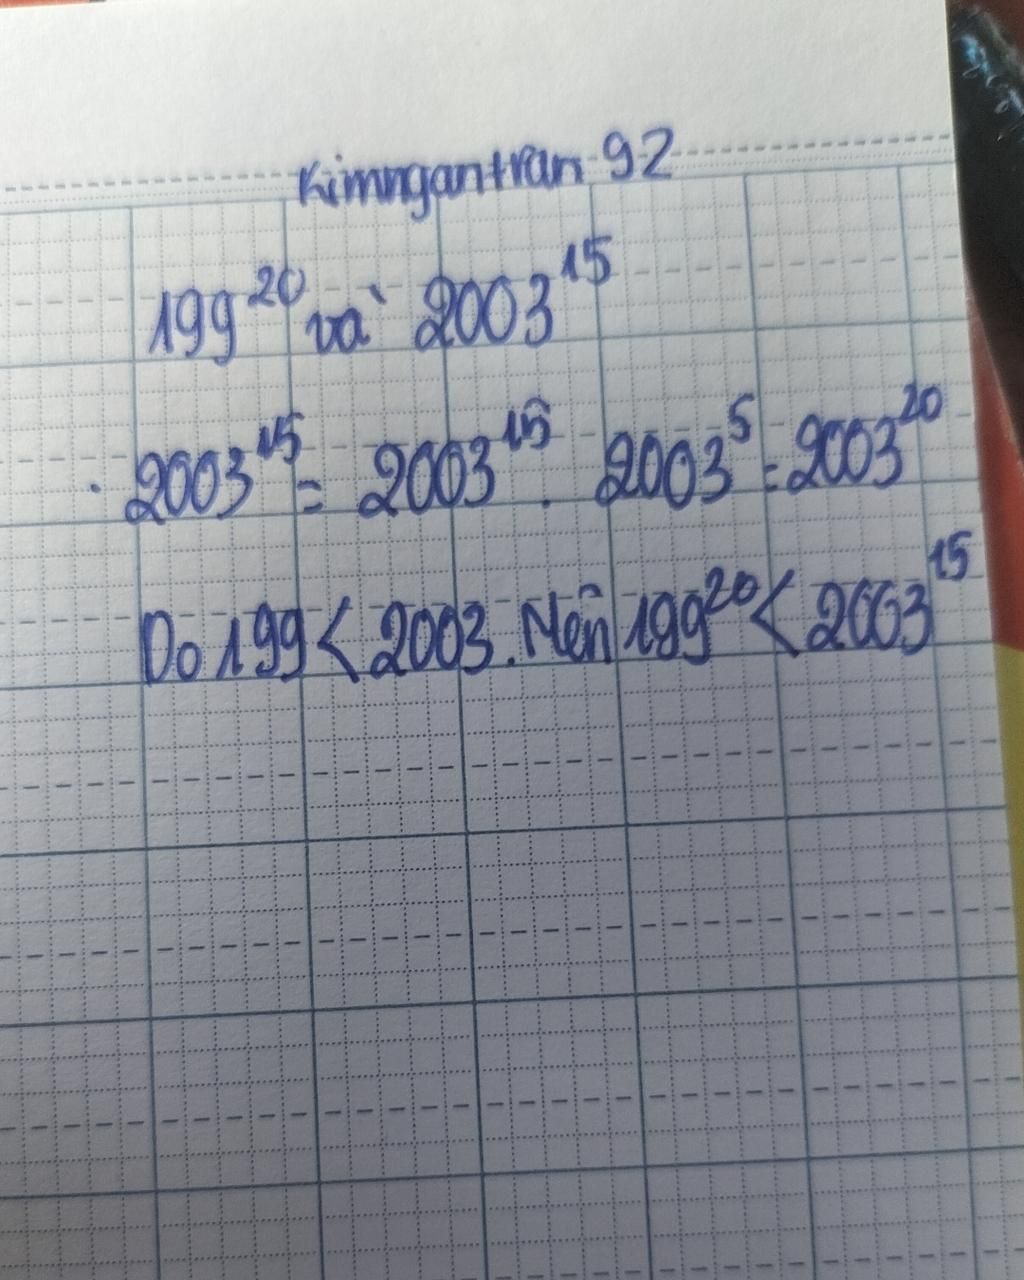 Kimngantran 92
199²⁰ và 2003¹⁵
. 2003¹⁵ = 2003¹⁵ . 2003⁵ = 2003²⁰
Do 199 < 2003. Nên 199²⁰ < 2003¹⁵